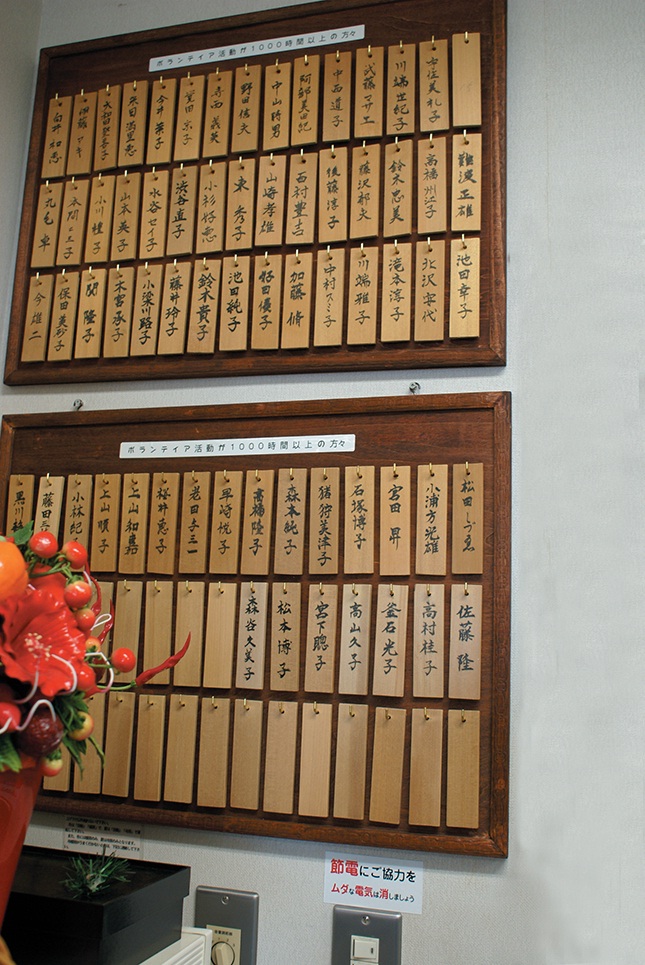 ボランティア活動が1000時間以上の方々
難波正雄
池田幸子
安住美礼子
高橋州江子
北沢安代
川端世紀子
鈴木忠美
滝本淳子
武藤マサエ
藤沢郁夫
川端雅子
中西道子
後藤淳子
中村スミ子
阿部美由紀
西村豊吉
加藤脩
中山時男
山崎孝雄
野田信夫
東秀子
池田純子
寺西義英
小杉好恵
鈴木貴子
渋谷直子
藤井玲子
今井葉子
水谷セイ子
小梁川路子
米田満里恵
山本英子
木宮承子
大和田登喜子
小川種子
関隆子
伊藤アキ
保田美砂子
向井和恵
丸毛卓
今雄二
ボランティア活動が1000時間以上の方々
佐藤隆
小浦方光雄
高村桂子
宮田昇
釜石光子
石塚博子
高山久子
猪狩美津子
宮下聰子
森本純子
松本博子
高橋隆子
森谷久美子
早崎悦子
老田与三一
桜井恵子
上山和嘉
上山順子
小林紀子
藤田
黒川
節電にご協力を
ムダな電気は消しましょう